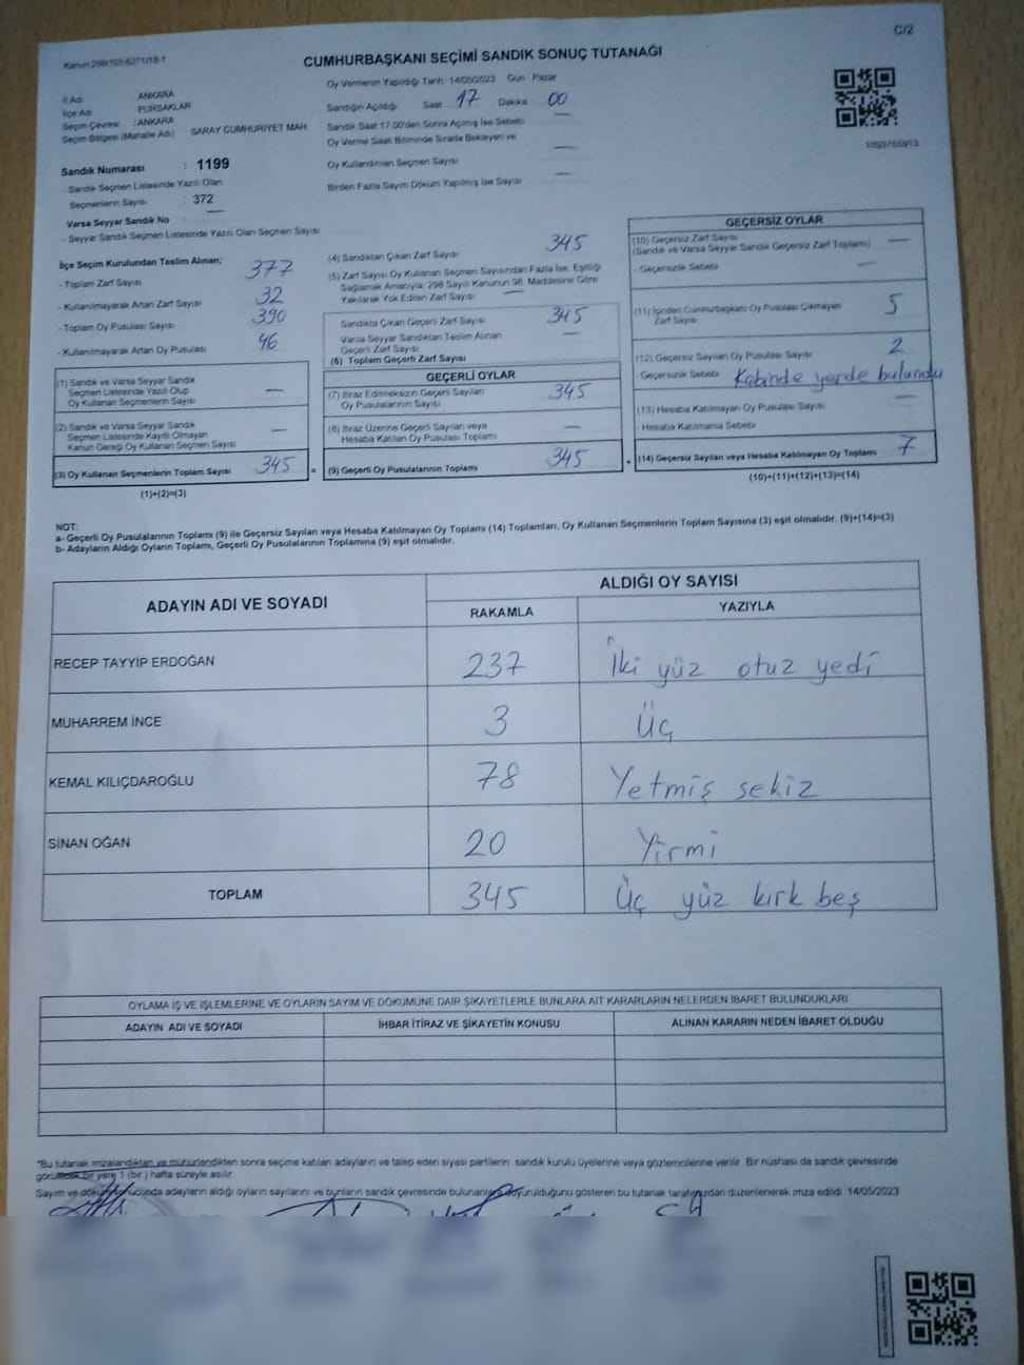 C/2
CUMHURBAŞKANI SEÇİMİ SANDIK SONUÇ TUTANAĞI
Oy Vermenin Yapıldığı Tarih: 14/05/2023 Gün: Pazar
İl Adı : ANKARA
İlçe Adı : PURSAKLAR
Seçim Çevresi : ANKARA
Seçim Bölgesi (Mahalle Adı) : SARAY CUMHURİYET MAH.
Sandığın Açıldığı Saat 17 Dakika 00
Sandık Saat 17.00'den Sonra Açılmış İse Sebebi
Oy Verme Saati Bitiminde Sırada Bekleyen ve
Oy Kullandırılan Seçmen Sayısı —
Birden Fazla Sayım Döküm Yapılmış İse Sayısı —
Sandık Numarası : 1199
- Sandık Seçmen Listesinde Yazılı Olan
Seçmenlerin Sayısı : 372
Varsa Seyyar Sandık No —
- Seyyar Sandık Seçmen Listesinde Yazılı Olan Seçmen Sayısı
İlçe Seçim Kurulundan Teslim Alınan;
- Toplam Zarf Sayısı 377
- Kullanılmayarak Artan Zarf Sayısı 32
- Toplam Oy Pusulası Sayısı 390
- Kullanılmayarak Artan Oy Pusulası 46
(1) Sandık ve Varsa Seyyar Sandık
Seçmen Listesinde Yazılı Olup
Oy Kullanan Seçmenlerin Sayısı —
(2) Sandık ve Varsa Seyyar Sandık
Seçmen Listesinde Kayıtlı Olmayan
Kanun Gereği Oy Kullanan Seçmen Sayısı —
(3) Oy Kullanan Seçmenlerin Toplam Sayısı 345
(1)+(2)=(3)
(4) Sandıktan Çıkan Zarf Sayısı 345
(5) Zarf Sayısı Oy Kullanan Seçmen Sayısından Fazla İse, Eşitliği
Sağlamak Amacıyla, 298 Sayılı Kanunun 98. Maddesine Göre
Yakılarak Yok Edilen Zarf Sayısı —
Sandıkta Çıkan Geçerli Zarf Sayısı 345
Varsa Seyyar Sandıktan Teslim Alınan
Geçerli Zarf Sayısı —
(6) Toplam Geçerli Zarf Sayısı
GEÇERLİ OYLAR
(7) İtiraz Edilmeksizin Geçerli Sayılan
Oy Pusulalarının Sayısı 345
(8) İtiraz Üzerine Geçerli Sayılan veya
Hesaba Katılan Oy Pusulası Toplamı —
(9) Geçerli Oy Pusulalarının Toplamı 345
GEÇERSİZ OYLAR
(10) Geçersiz Zarf Sayısı
(Sandık ve Varsa Seyyar Sandık Geçersiz Zarf Toplamı) —
Geçersizlik Sebebi —
(11) İçinden Cumhurbaşkanı Oy Pusulası Çıkmayan
Zarf Sayısı 5
(12) Geçersiz Sayılan Oy Pusulası Sayısı 2
Geçersizlik Sebebi Kabinde yerde bulundu
(13) Hesaba Katılmayan Oy Pusulası Sayısı —
Hesaba Katılmama Sebebi
(14) Geçersiz Sayılan veya Hesaba Katılmayan Oy Toplamı 7
(10)+(11)+(12)+(13)=(14)
NOT:
a- Geçerli Oy Pusulalarının Toplamı (9) ile Geçersiz Sayılan veya Hesaba Katılmayan Oy Toplamı (14) Toplamları, Oy Kullanan Seçmenlerin Toplam Sayısına (3) eşit olmalıdır. (9)+(14)=(3)
b- Adayların Aldığı Oyların Toplamı, Geçerli Oy Pusulalarının Toplamına (9) eşit olmalıdır.
ADAYIN ADI VE SOYADI
ALDIĞI OY SAYISI
RAKAMLA YAZIYLA
RECEP TAYYİP ERDOĞAN 237 İki yüz otuz yedi
MUHARREM İNCE 3 Üç
KEMAL KILIÇDAROĞLU 78 Yetmiş sekiz
SİNAN OĞAN 20 Yirmi
TOPLAM 345 Üç yüz kırk beş
OYLAMA İŞ VE İŞLEMLERİNE VE OYLARIN SAYIM VE DÖKÜMÜNE DAİR ŞİKAYETLERLE BUNLARA AİT KARARLARIN NELERDEN İBARET BULUNDUKLARI
ADAYIN ADI VE SOYADI İHBAR İTİRAZ VE ŞİKAYETİN KONUSU ALINAN KARARIN NEDEN İBARET OLDUĞU
"Bu tutanak imzalandıktan ve mühürlendikten sonra seçime katılan adayların ve talep eden siyasi partilerin sandık kurulu üyelerine veya gözlemcilerine verilir. Bir nüshası da sandık çevresinde
görülecek bir yere 1 (bir) hafta süreyle asılır.
Sayım ve döküm sonucunda adayların aldığı oyların sayılarını ve bunların sandık çevresinde bulunanlara duyurulduğunu gösteren bu tutanak tarafımızdan düzenlenerek imza edildi. 14/05/2023